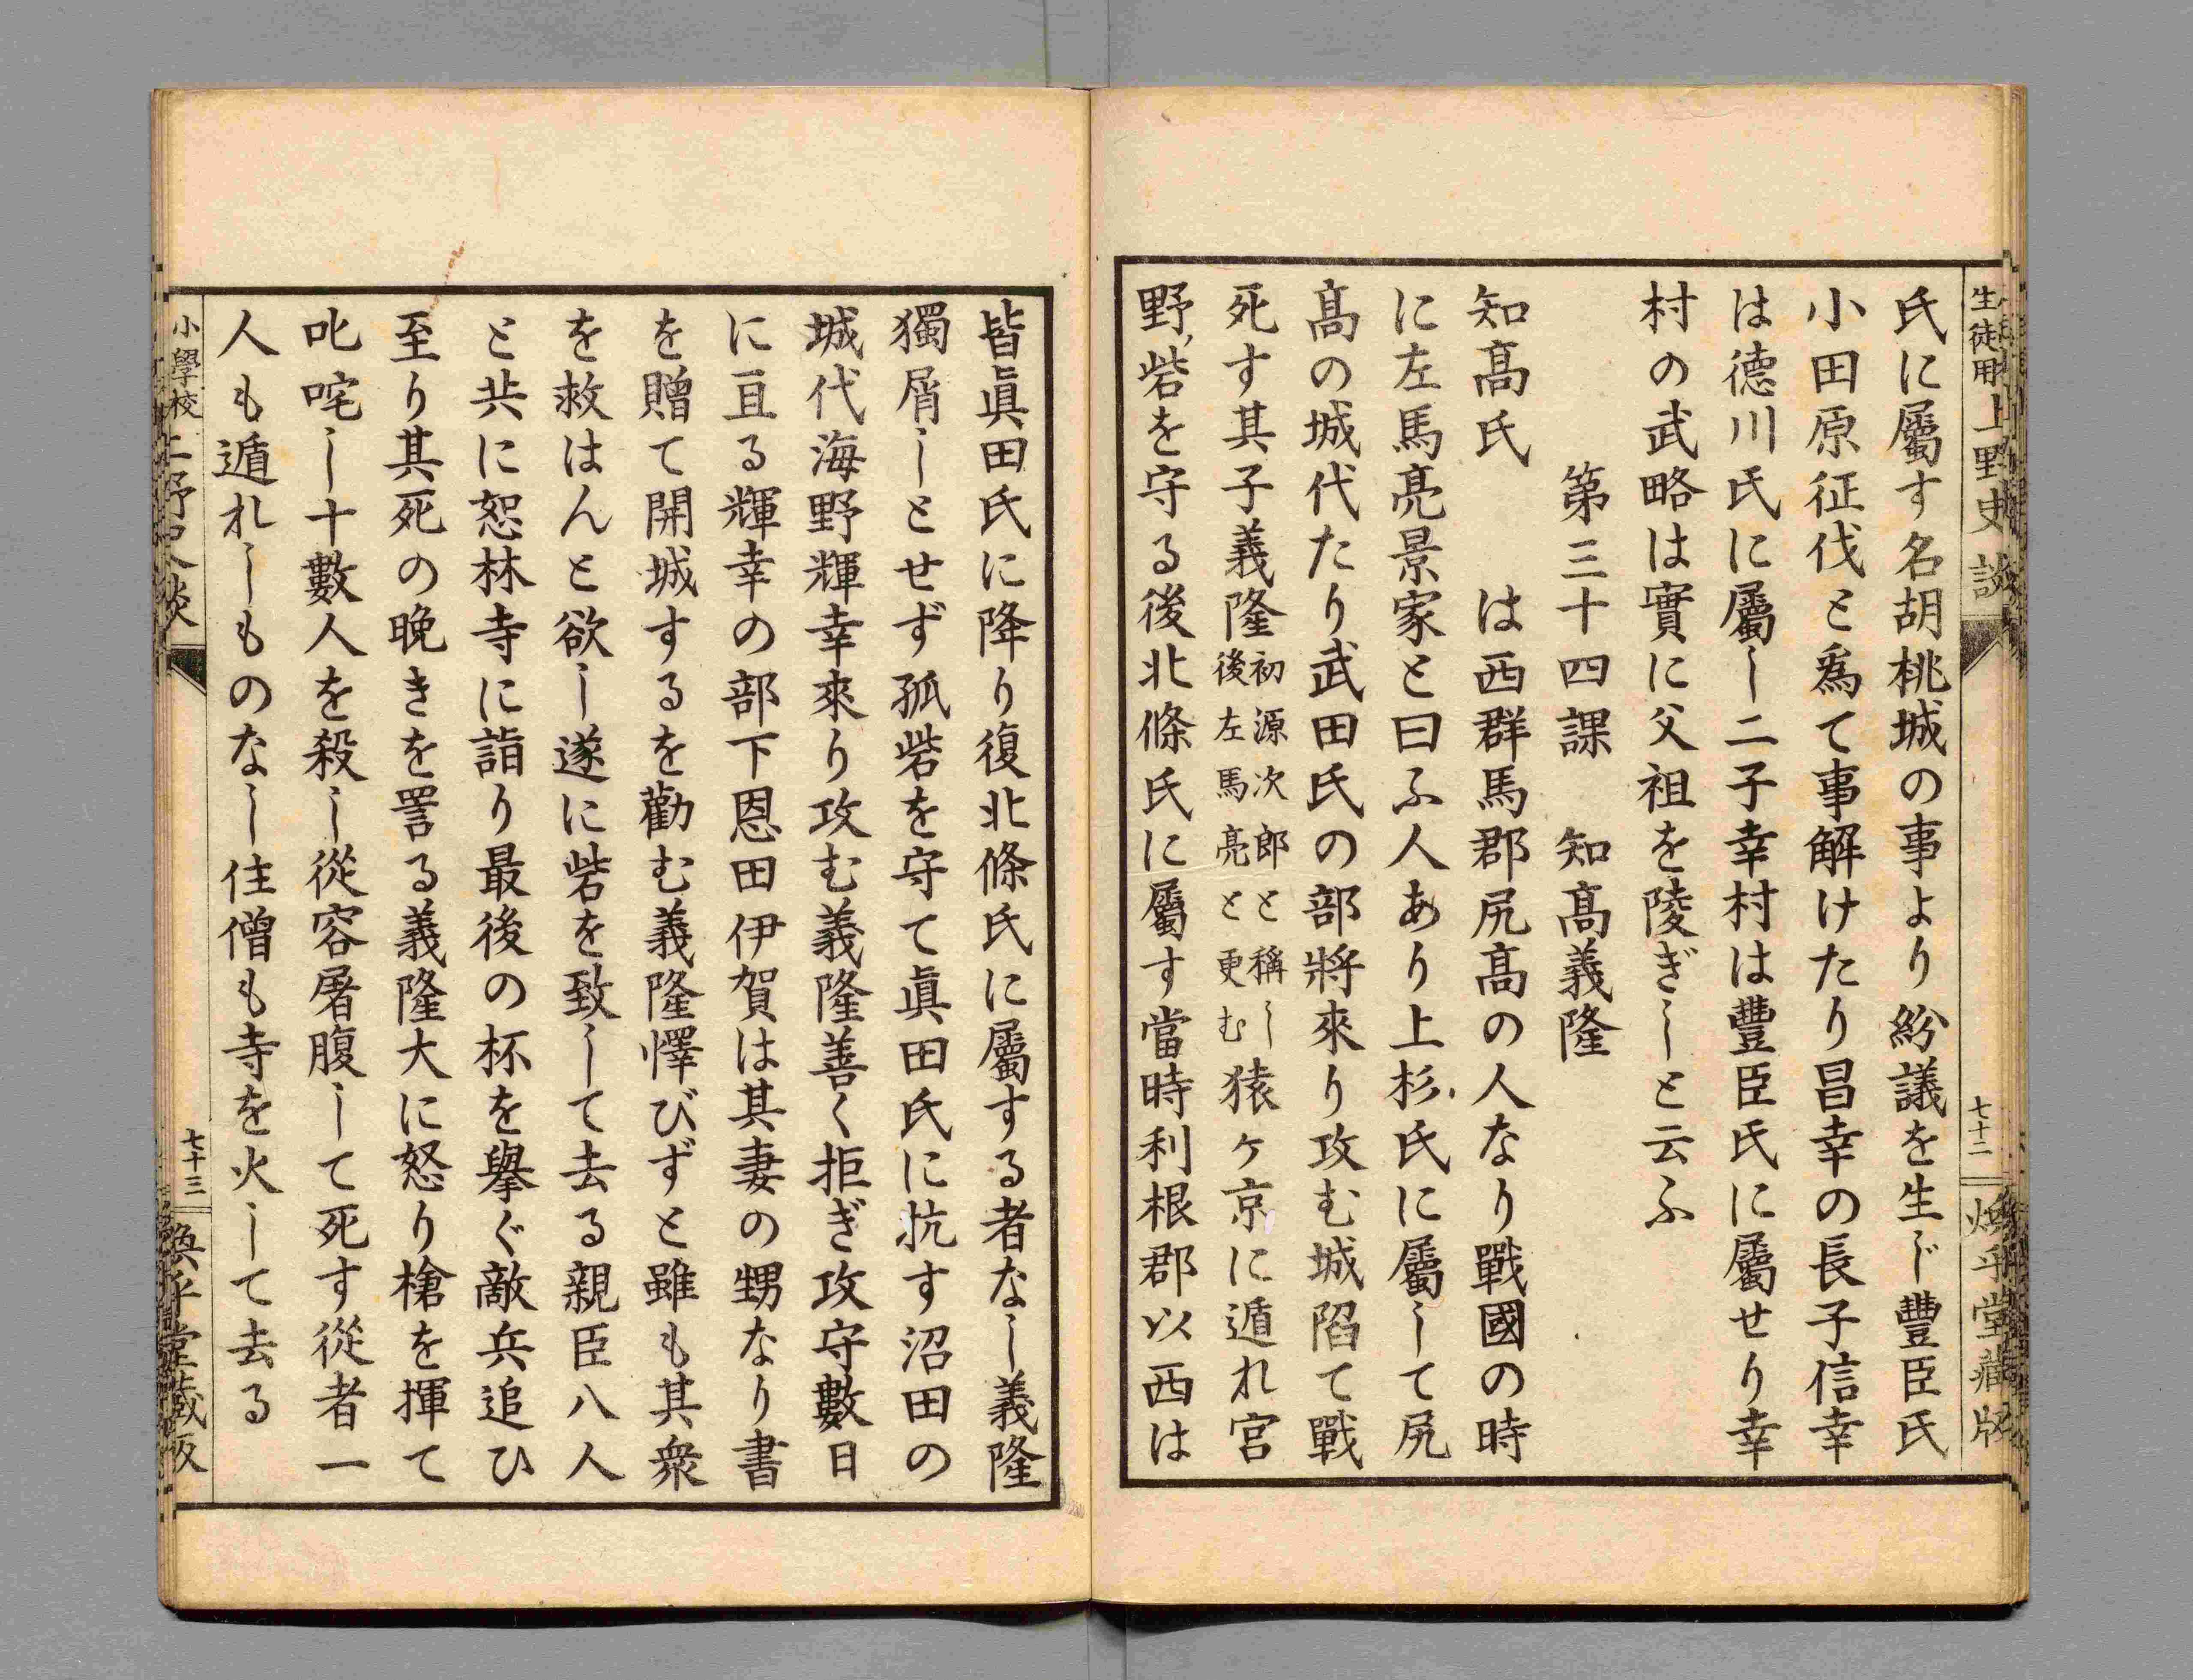 生徒用上野史談
七十二
煥乎堂藏版
氏に屬す名胡桃城の事より紛議を生じ豐臣氏
小田原征伐と爲て事解けたり昌幸の長子信幸
は徳川氏に屬し二子幸村は豐臣氏に屬せり幸
村の武略は實に父祖を陵ぎしと云ふ
第三十四課 知髙義隆
知髙氏 は西群馬郡尻髙の人なり戰國の時
に左馬亮景家と曰ふ人あり上杉氏に屬して尻
髙の城代たり武田氏の部將來り攻む城陷て戰
死す其子義隆初源次郎と稱し後左馬亮と更む猿ヶ京に遁れ宮
野砦を守る後北條氏に屬す當時利根郡以西は
皆眞田氏に降り復北條氏に屬する者なし義隆
獨屑しとせず孤砦を守て眞田氏に抗す沼田の
城代海野輝幸來り攻む義隆善く拒ぎ攻守數日
に亘る輝幸の部下恩田伊賀は其妻の甥なり書
を贈て開城するを勸む義隆懌びずと雖も其衆
を救はんと欲し遂に砦を致して去る親臣八人
と共に恕林寺に詣り最後の杯を擧ぐ敵兵追ひ
至り其死の晩きを詈る義隆大に怒り槍を揮て
叱咤し十數人を殺し從容屠腹して死す從者一
人も遁れしものなし住僧も寺を火して去る
小學校上野史談
七十三
煥乎堂藏版